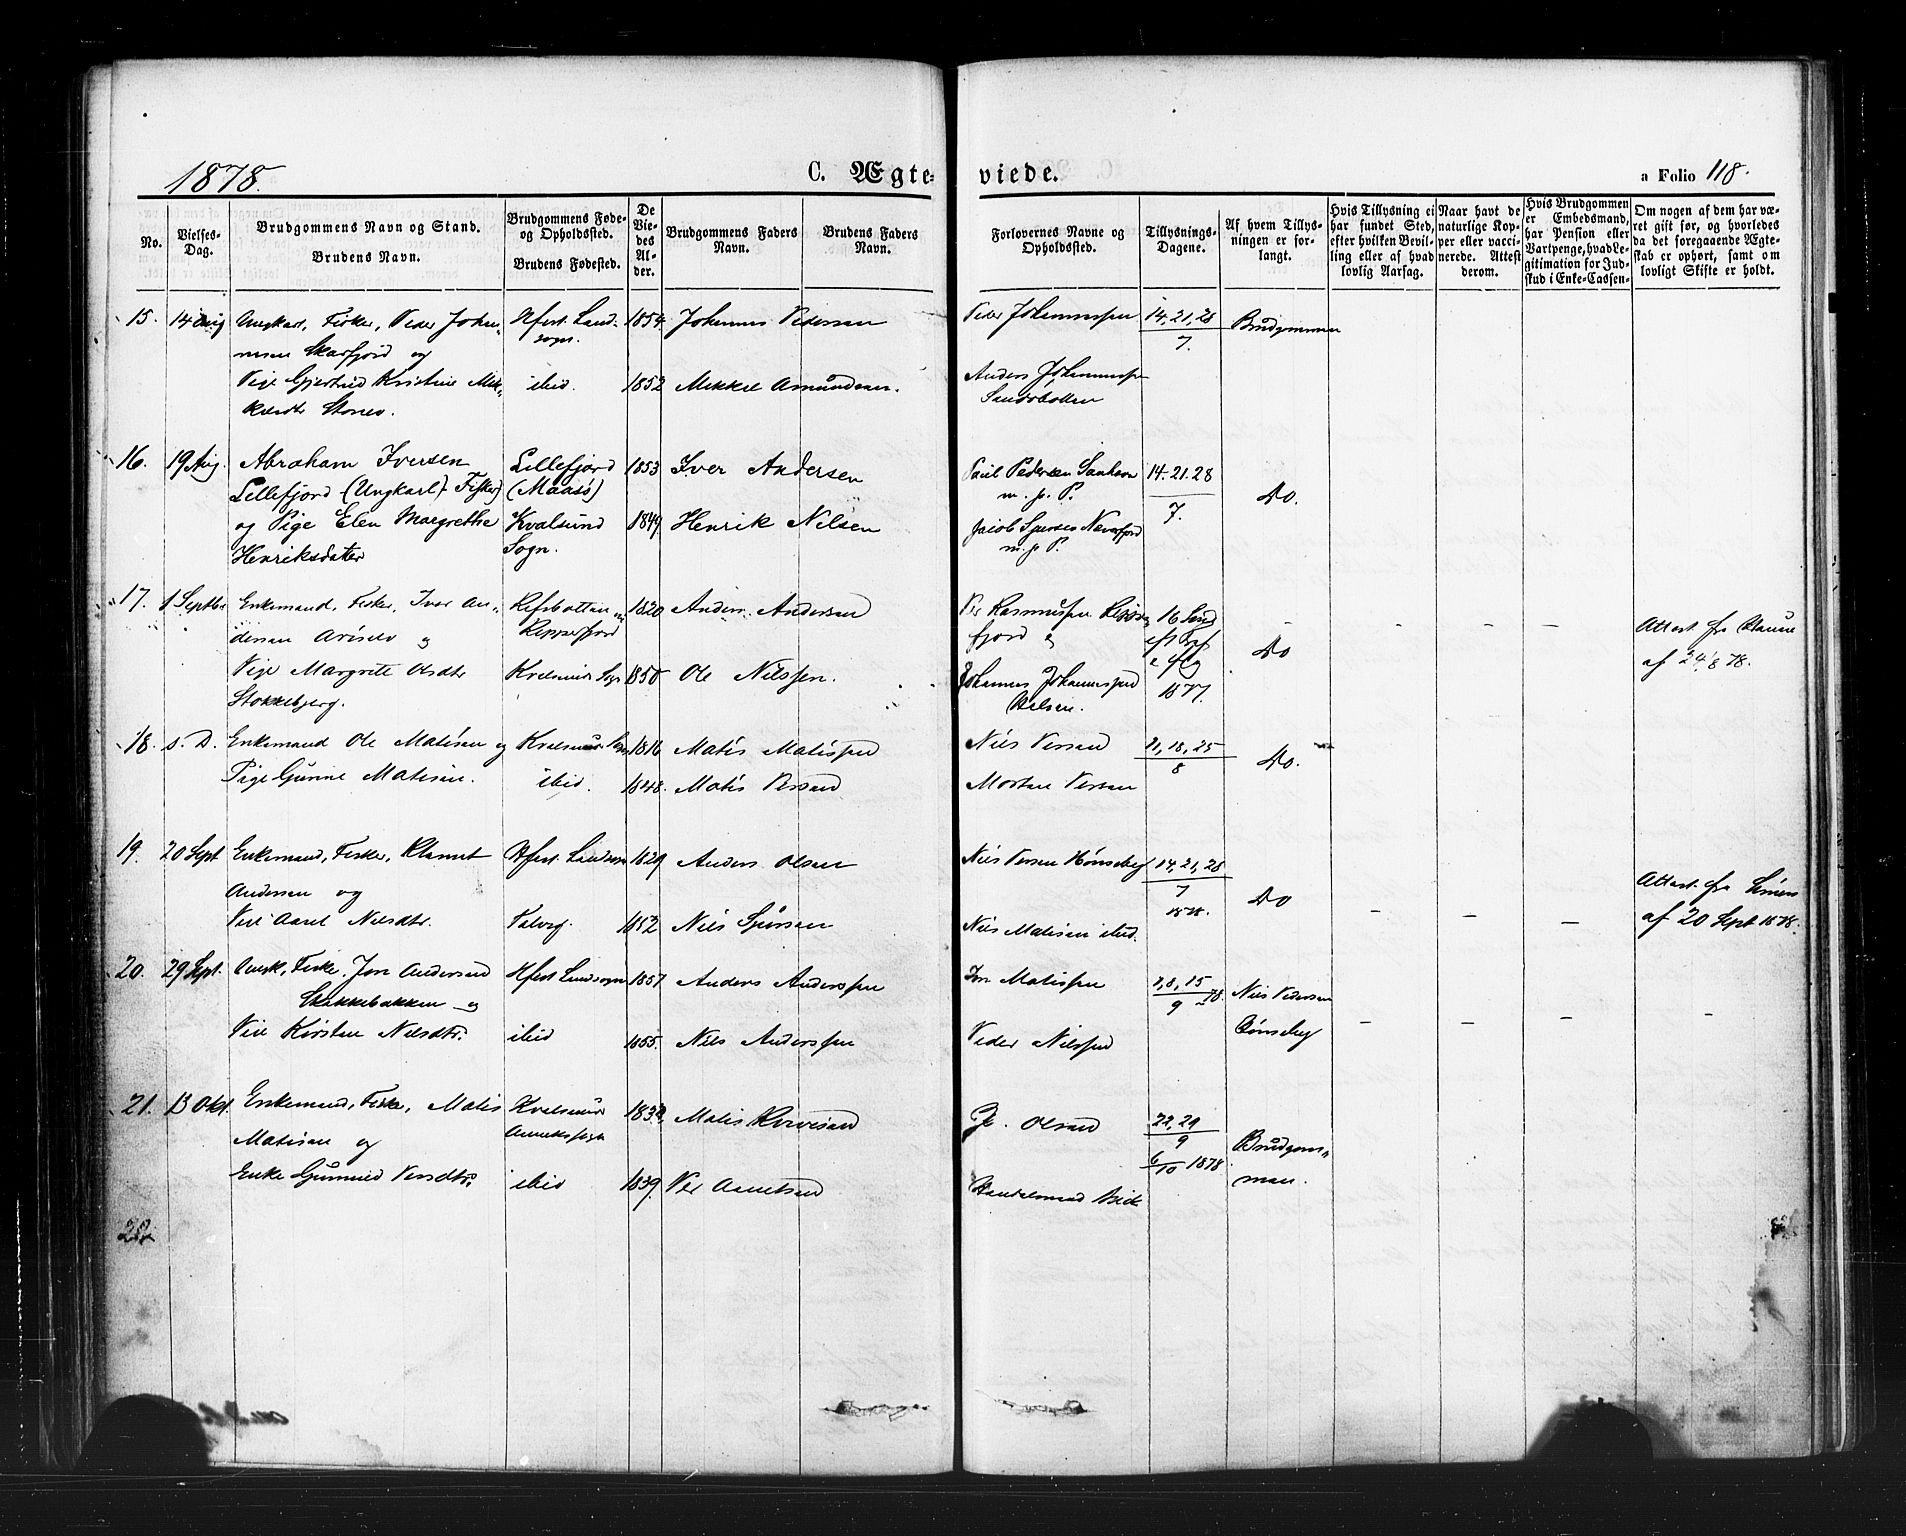 1878.
C. Ægte-
viede.
a Folio 118.
No.
Vielses-
Dag.
Brudgommens Navn og Stand.
Brudens Navn.
Brudgommens Føde-
og Opholdssted.
Brudens Fødested.
De
Vie-
des
Al-
der.
Brudgommens Faders
Navn.
Brudens Faders
Navn.
Forlovernes Navne og
Opholdssted.
Tillysnings-
Dagene.
Af hvem Tillys-
ningen er for-
langt.
Hvis Tillysning ei
har fundet Sted,
efter hvilken Bevil-
ling eller af hvad
lovlig Aarsag.
Naar havt de
naturlige Kop-
per eller vacci-
nerede. Attest
derom.
Hvis Brudgommen
er Embedsmand,
har Pension eller
Vartpenge, hvad Le-
gitimation for Ind-
skud i Enke-Cassen.
Om nogen af dem har væ-
ret gift før, og hvorledes
da det foregaaende Ægte-
skab er ophørt, samt om
lovligt Skifte er holdt.
15. 14 Aug Ungkarl, Fisker, Peder Johan- Hfest. Land- 1854 Johannes Pedersen Peder Johannessen 14, 21, 28 Brudgommen
nesen Skarfjord og sogn. 7.
Pige Gjertrud Kristine Mik- ibid. 1852 Mikkel Amundsen. Anders Johannessen
kelsdtr
16. 19 Aug. Abraham Iversen Lillefjord 1853 Iver Andersen Paul Pedersen 14. 21. 28
Lillefjord (Ungkarl) Fisker (Maasø) m. p. P. 7. Do.
og Pige Elen Margrethe Kvalsund 1849 Henrik Nilsen Jacob
Henriksdatter Sogn. m. p. P.
17. 1 Septbr Enkemand, Fisker, Iver An- 1820 Anders Andersen Per Rasmussen 16
dersen og Repperfjord fjord og Do Attest fra
Pige Margrete Olsdtr Kvalsund Sogn 1850 Ole Nilssen. Johannes Johannessen 1877. af 24/8 78.
Stokkebjerg.
18. s. D. Enkemand Ole Mathisen og Kvalsund Sogn 1816 Matis Matissen Nils Persen 11, 18, 25
8 Do.
Pige Gunne Matisen. ibid. 1848. Matis Persen Morten Persen
19. 20 Sept Enkemand, Fisker, Klemet Hfest Landsogn 1829 Anders Olsen Nils Persen Hønseby 14, 21, 28
Andersen og 7 Do Attest fra
Pige Aaret Nilsdtr. 1852 Nils Nils Matisen ibid. 1878. af 20 Sept 1878.
20. 29 Sept. Ungk, Fisker, Jon Andersen Hfest Landsogn 1857 Anders Anderssen Jon Matissen 1, 8, 15 Nils Pedersen
Stakkebakken og 9 78.
Pige Kirsten Nilsdtr. ibid 1855. Nils Anderssen Peder Nilssen Hønseby
21. 13 Okt. Enkemand, Fisker, Matis Kvalsund 1832 Matis Olsen 22, 29 Brudgom-
Matisen og Annekssogn 9
Enke Gunnild Persdtr. ibid 1839 Per Handelsmand 6/10 1878 man.
22